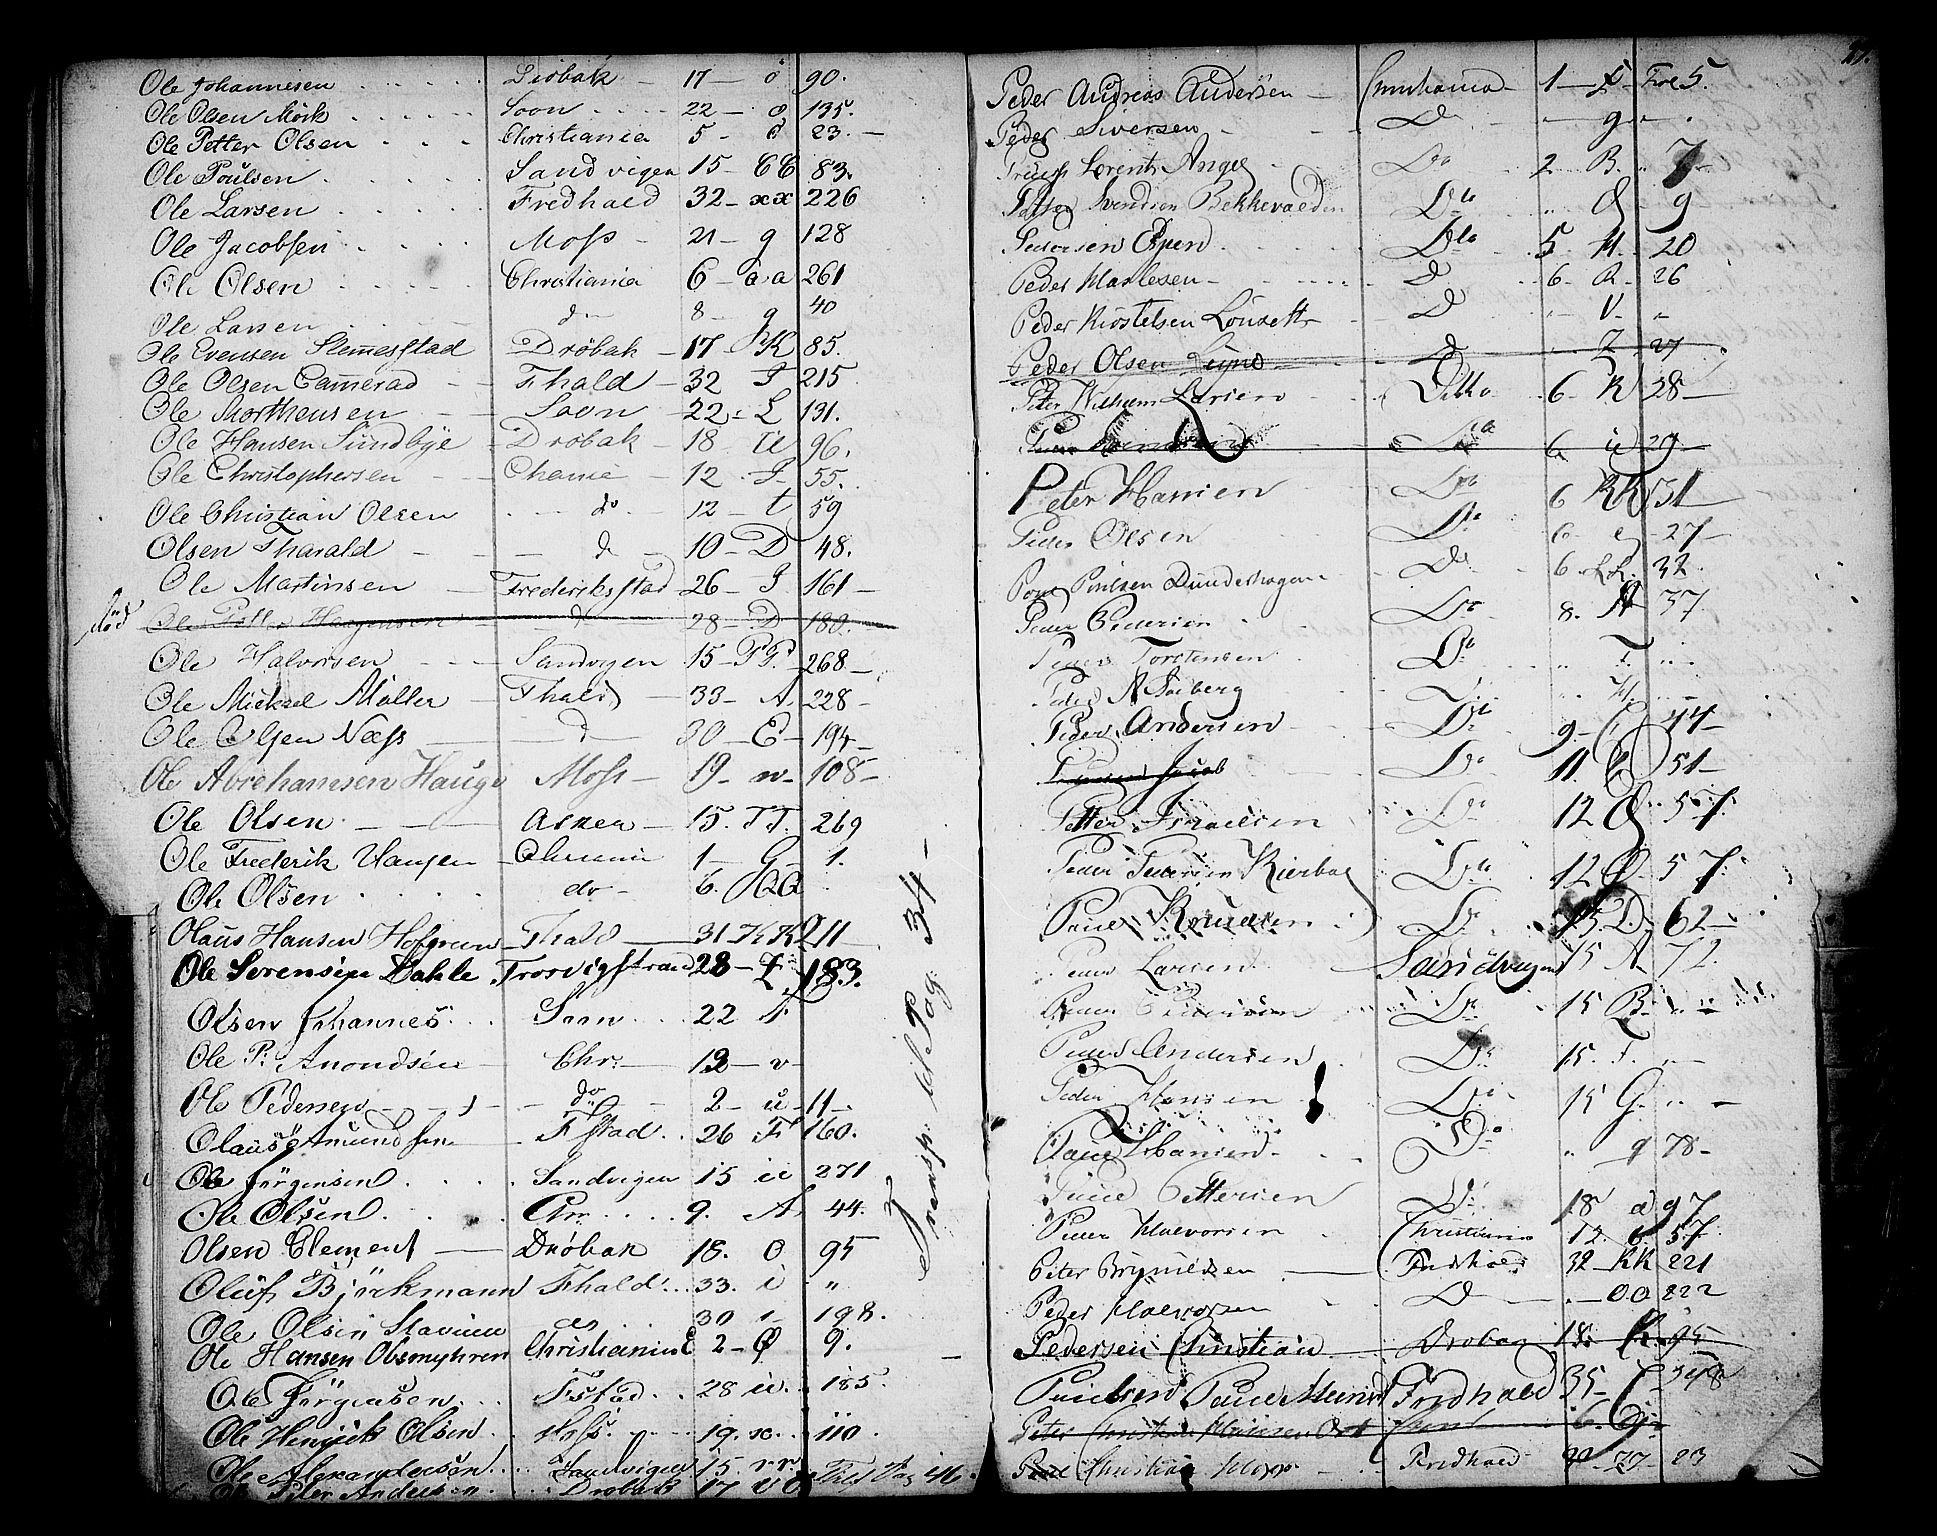 Ole Johannesen Dröbak 17 ö 90.
Ole Olsen Mörk Soon 22 o 135.
Ole Petter Olsen Christiania 5 o 23.
Ole Poulsen Sandvigen 15 CC 83.
Ole Larsen Fredhald 32 xx 226
Ole Jacobsen Moss 21 g 128
Ole Olsen Christiania 6 aa 261
Ole Larsen d 8 g 40
Ole Evensen Slemmestad Dröbak 17 K 85.
Ole Olsen Camerad Fhald 32 S 215
Ole Morthensen Soon 22 L 131.
Ole Hansen Sundbye Dröbak 18 U 96.
Ole Christophersen Chania 12 S 55.
Ole Christian Olsen do 12 t 59
Olsen Tharald d 10 D 48.
Ole Martinsen Frederiksstad 26 I 161
död Ole Petter Hagensen d 28 D 180.
Ole Halvorsen Sandvigen 15 PP. 268
Ole Mickael Möller Fhald 33 A. 228
Ole Olsen Næss d 30 E 194
Ole Abrehamsen Hauge Moss 19 w 108
Ole Olsen Asker 15. TT. 269
Ole Frederik Hansen Chrania 1 G 1.
Ole Olsen do 6.
Olaus Hansen Hofgreen Fhald 31 KK 211
Ole Sörensen Dahle Trosvigstrand 28 183.
Olsen Johannes Soon 22 F
Ole P. Amondsen Chr. 12 v
Ole Pedersen do 2 u 11
Olaus Amundsen Fstad 26 F 160.
Ole Jörgensen Sandvigen 15 ii 271
Ole Olsen Chr 9. A 44.
Olsen Clement Dröbak 18. O 95
Oluf Björkmann Fhald 33. i "
Ole Olsen do 30 198.
Ole Hansen Obsmyhren Christiania 2 9.
Ole Jörgensen Fstad 28 ii 185.
Ole Henrick Olsen Moss. 19. x. 110
Ole Alexandersen Sandvigen 15. rr.
Ole Peter Andersen Dröbak 17
Transp. til Pag. 34
Peder Andreas Andersen Christiania 1 Fol 5.
Peder Siversen D " g "
Lorentz Angel Do 2 B. " 7
Svendsen Do " 9
Pedersen Espen Do 5 M. 20
Peder Marlesen D 6 R 26
Peder Kiöstelsen D " V. "
Peder Olsen Lund d Z 27
Peter Wilhelm Larsen Ditto 6 K 28
Do 6 ii 29
Peter Hansen Do 6 KK 31
Peder Olsen Do 6 27
Poulsen Dunderhagen Do 6 LL. 32
Peder Pedersen Do 8. A 37
Peder Torstensen Do " T. "
Peder A Do "
Peder Andersen Do 9. 44
Jacob Do 11. 51
Petter Israelsen Do 12 57
Peder Pedersen Kierbog Do 12 57
Poul Knudsen Do 15. D. 62
Peder Larsen Sandvigen 15 A 72.
Pedersen Do 15 B "
Peder Andersen Do 15. F. "
Peder Hansen Do 15 G. "
Poul Hansen Do " q 78
Pettersen Do 18 a 97
Peder Halvorsen Christiania 12. 57.
Peter Brynildsen Fredhald 32 KK 221
Peder Halvorsen D OO 222
Pedersen Christian Dröbag 18. 95
Poulsen Fredhald 35 248
Peter Christian Hansen 6.
Poul Christian Fredhald 32 23